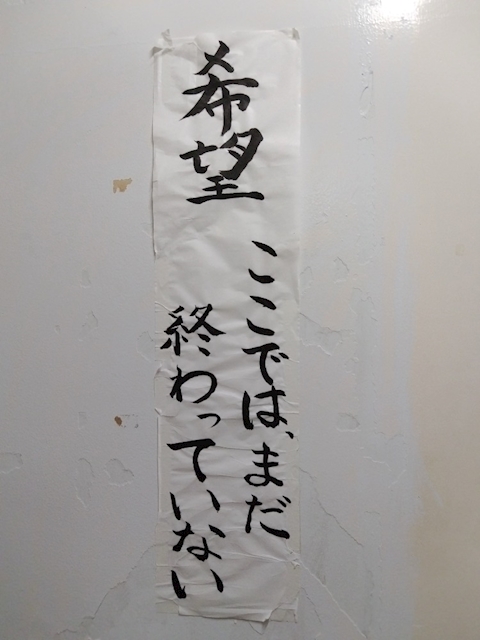 希望
ここでは、まだ
終わっていない